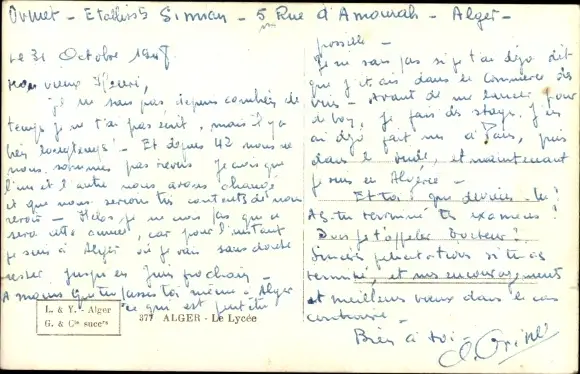 Etabliss^ts Simian - 5 Rue d'Amourah - Alger -
Le 31 Octobre 1948
Mon vieux Henri,
je ne sais pas depuis combien de
temps je ne t'ai pas écrit, mais il y a
très longtemps! - Et depuis 42 nous ne
nous sommes pas revus. Je crois que
l'un et l'autre nous avons changé
et que nous serions très contents de nous
revoir - Hélas, je ne crois pas que ce
sera cette année, car pour l'instant
je suis à Alger où je vais sans doute
rester jusqu'en Juin prochain -
A moins que tu passes toi même à Alger
ce qui est peut être
possible -
Je ne sais pas si je t'ai déjà dit
que j'étais dans le commerce des
vins - Avant de me lancer pour
de bon, je fais des stages. J'en
ai déjà fait un à Paris, puis
dans le , et maintenant
je suis en Algérie -
Et toi: que deviens-tu?
As-tu terminé tes examens?
Dois-je t'appeler Docteur?
Sincères félicitations si tu as
terminé, et mes encouragements
et meilleurs vœux dans le cas
contraire -
Bien à toi -
L. & Y. - Alger
G. & Cie succrs
377 ALGER - Le Lycée